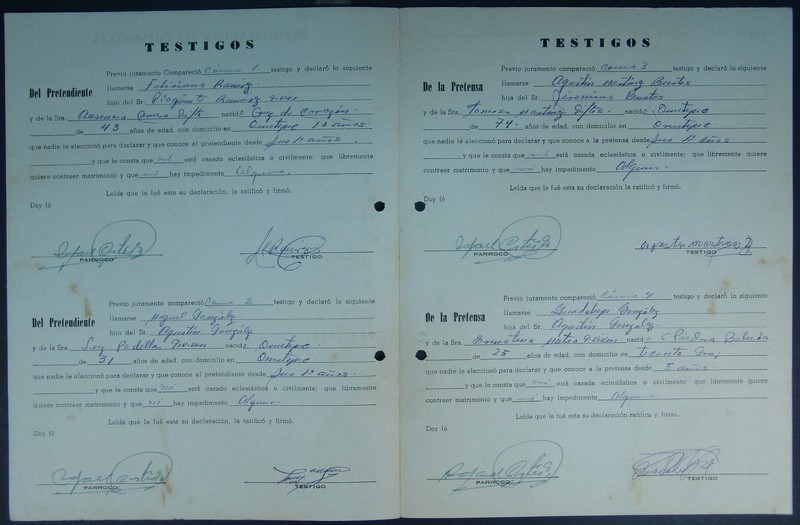 TESTIGOS
Previo juramento Compareció Como 1 testigo y declaró lo siguiente
Del Pretendiente llamarse Feliciano Ramíz.
hijo del Sr. Ramíz vive
y de la Sra. Ausencia dfta. nacido Cruz de Corazón
de 43 años de edad, con domicilio en Ometepec 10 años
que nadie le aleccionó para declarar y que conoce al pretendiente desde sus 1os años.
y que le consta que no está casado eclesiástica o civilmente; que libremente
quiere contraer matrimonio y que no hay impedimento Alguno.
Leída que le fué esta su declaración, la ratificó y firmó.
Doy fé
PARROCO
TESTIGO
Previo juramento compareció Como 2 testigo y declaró lo siguiente
Del Pretendiente llamarse Miguel Gonzálz.
hijo del Sr. Agustín Gonzálz
y de la Sra. Luz Padilla viven nacido Ometepec
de 31 años de edad, con domicilio en Ometepec
que nadie le aleccionó para declarar y que conoce al pretendiente desde sus 1os años.
y que le consta que no está casado eclesiástica o civilmente; que libremente
quiere contraer matrimonio y que no hay impedimento Alguno.
Leída que le fué esta su declaración, la ratificó y firmó.
Doy fé
PARROCO
TESTIGO
TESTIGOS
Previo juramento compareció Como 3 testigo y declaró lo siguiente
De la Pretensa llamarse Agustín Martínz Bustos
hija del Sr. Jerónimo Bustos
y de la Sra. Tomasa Martínez dftos. nacido Ometepec
de 74. años de edad, con domicilio en Ometepec
que nadie le aleccionó para declarar y que conoce a la pretensa desde sus 1os años.
y que le consta que no está casada eclesiástica o civilmente; que libremente quiere
contraer matrimonio y que no hay impedimento Alguno.
Leída que le fué esta su declaración, la ratificó y firmó.
Doy fé
PARROCO
TESTIGO
Previo juramento compareció Como 4 testigo y declaró lo siguiente
De la Pretensa llamarse Guadalupe Gonzálz
hija del Sr. Agustín Gonzálz.
y de la Sra. Mateo viven nacido Piedra
de 25 años de edad, con domicilio en
que nadie le aleccionó para declarar y que conoce a la pretensa desde 5 años.
y que le consta que no está casada eclesiástica o civilmente; que libremente quiere
contraer matrimonio y que no hay impedimento Alguno.
Leída que le fué esta su declaración ratificó y firmó.
Doy fé
PARROCO
TESTIGO